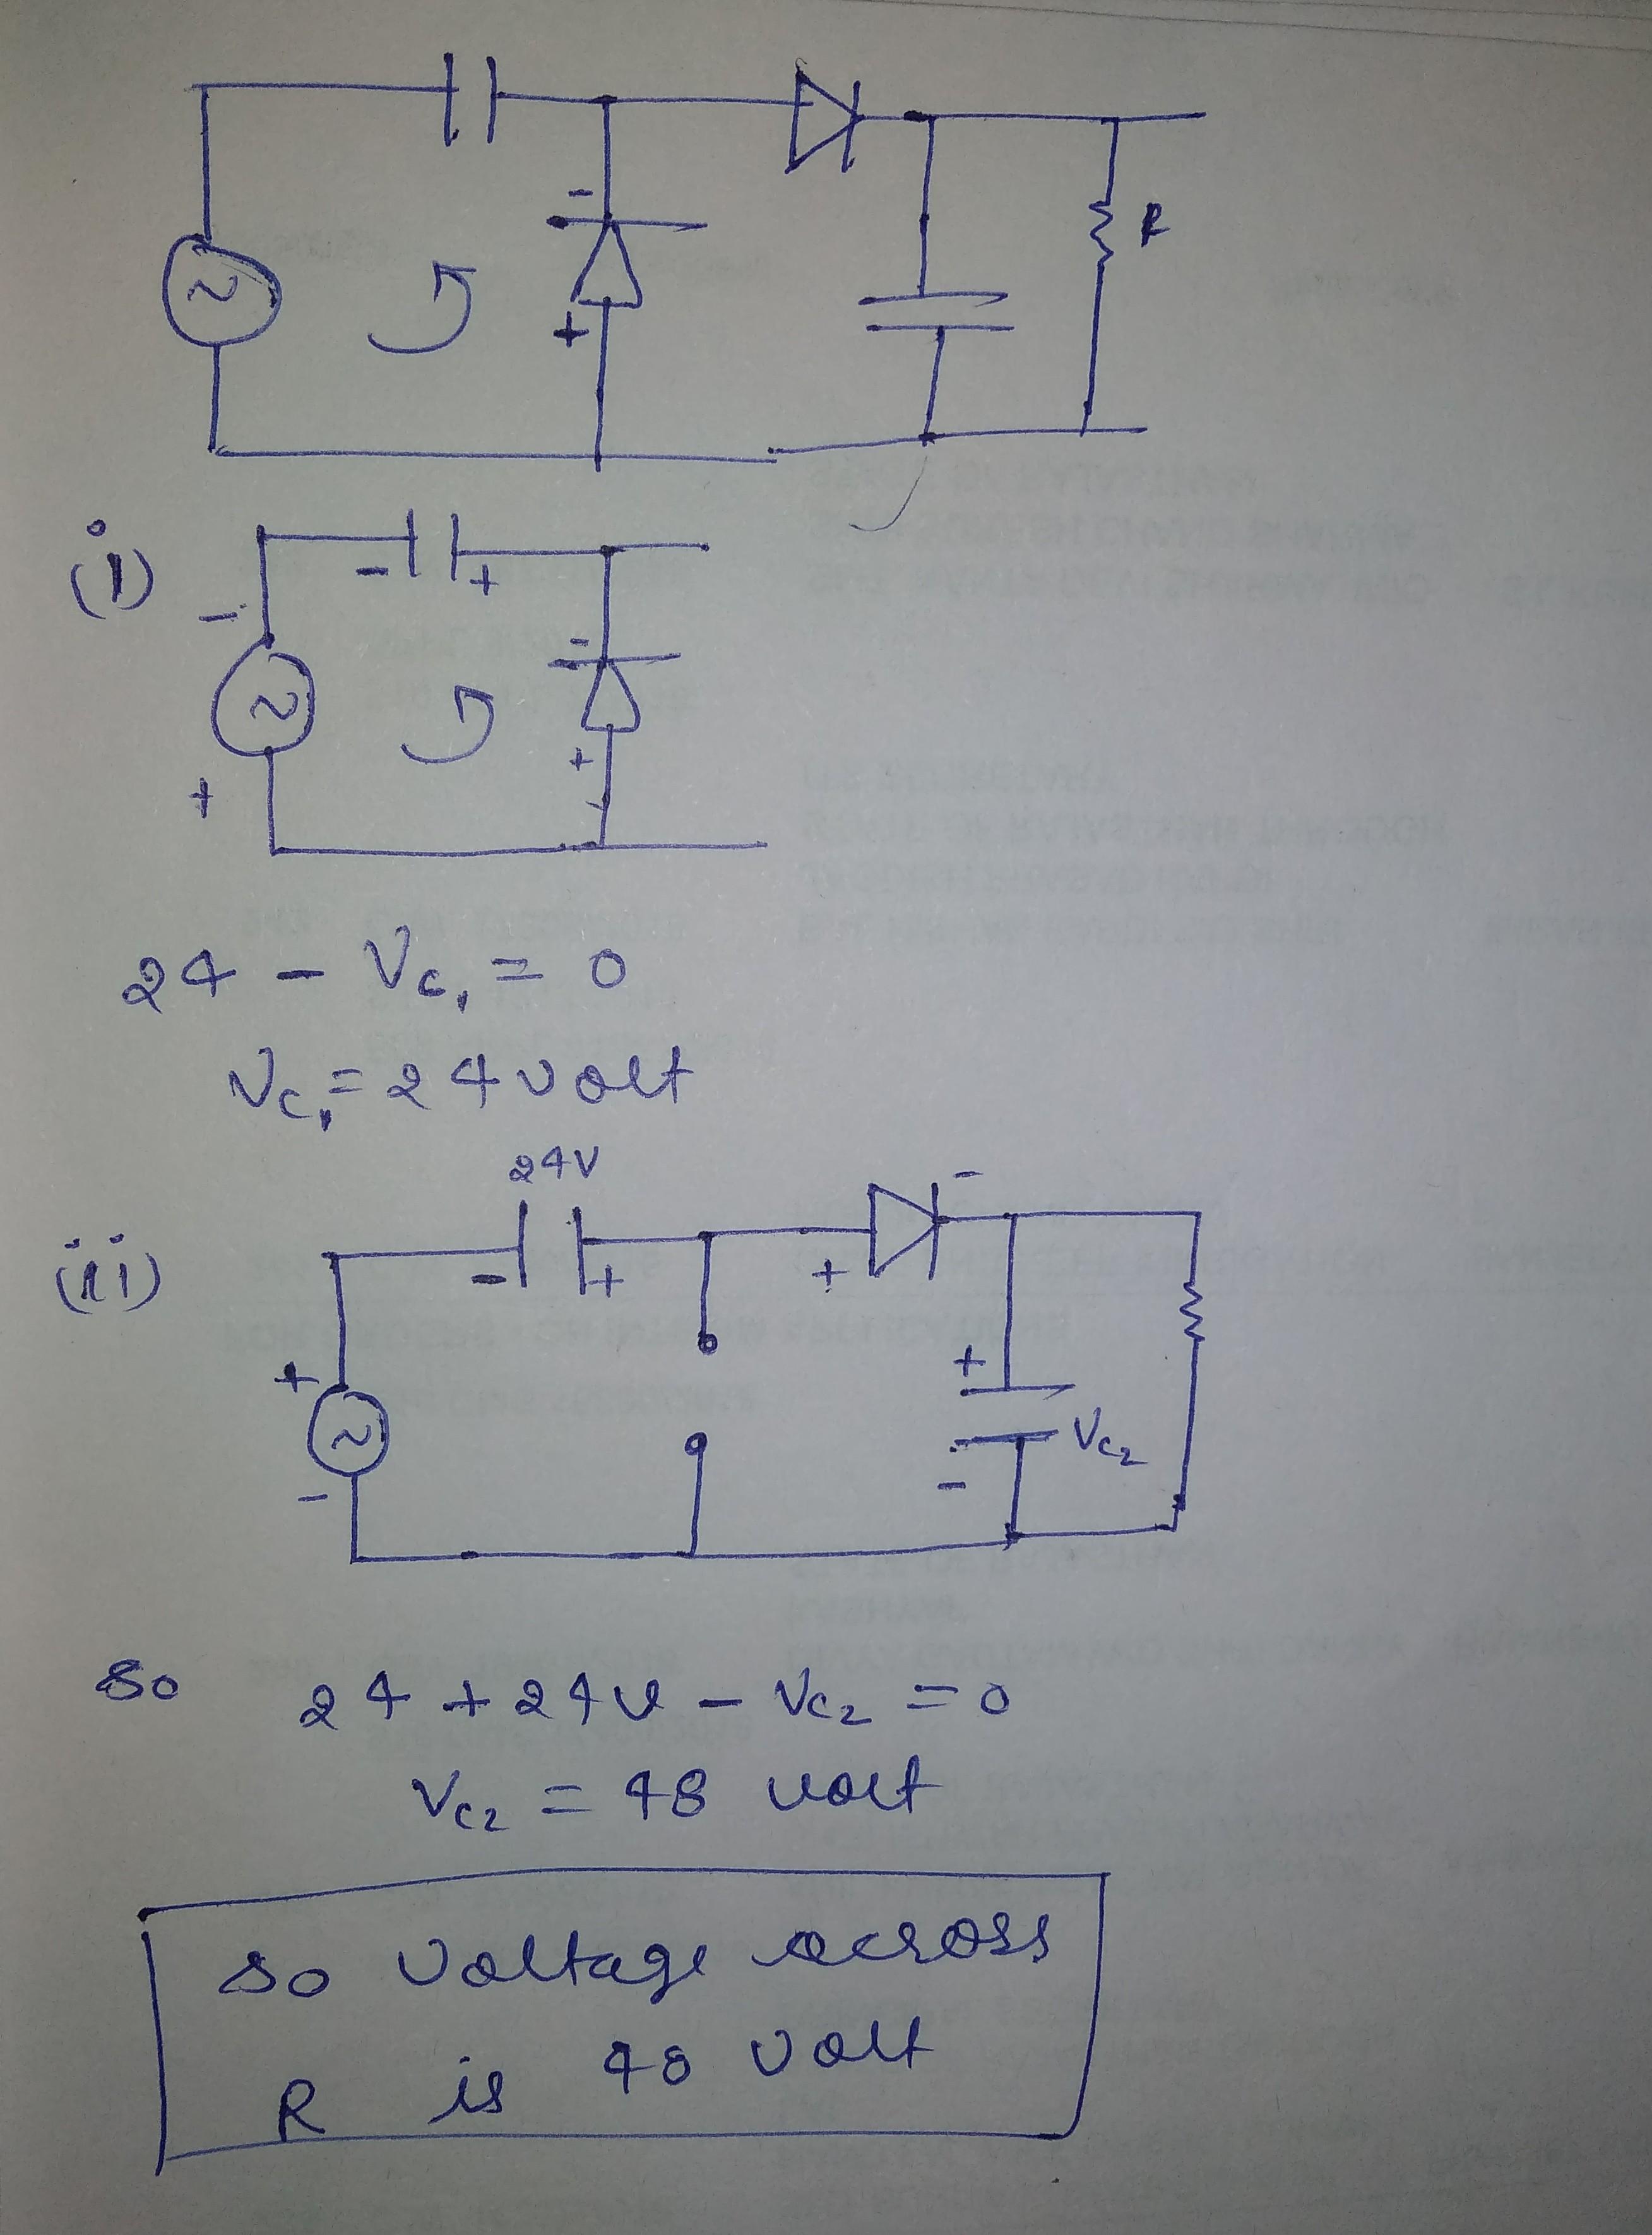 ~
-
+
R
(i)
- +
-
~
+
-
+
24 - Vc₁ = 0
Vc₁ = 24 volt
24V
(ii)
- +
+ -
+
~
-
+
-
Vc₂
So 24 + 24v - Vc₂ = 0
Vc₂ = 48 volt
so voltage across
R is 48 volt